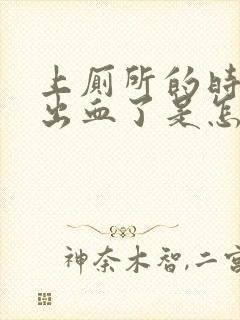 上厕所的时
出血了是怎
神奈木智,二宫